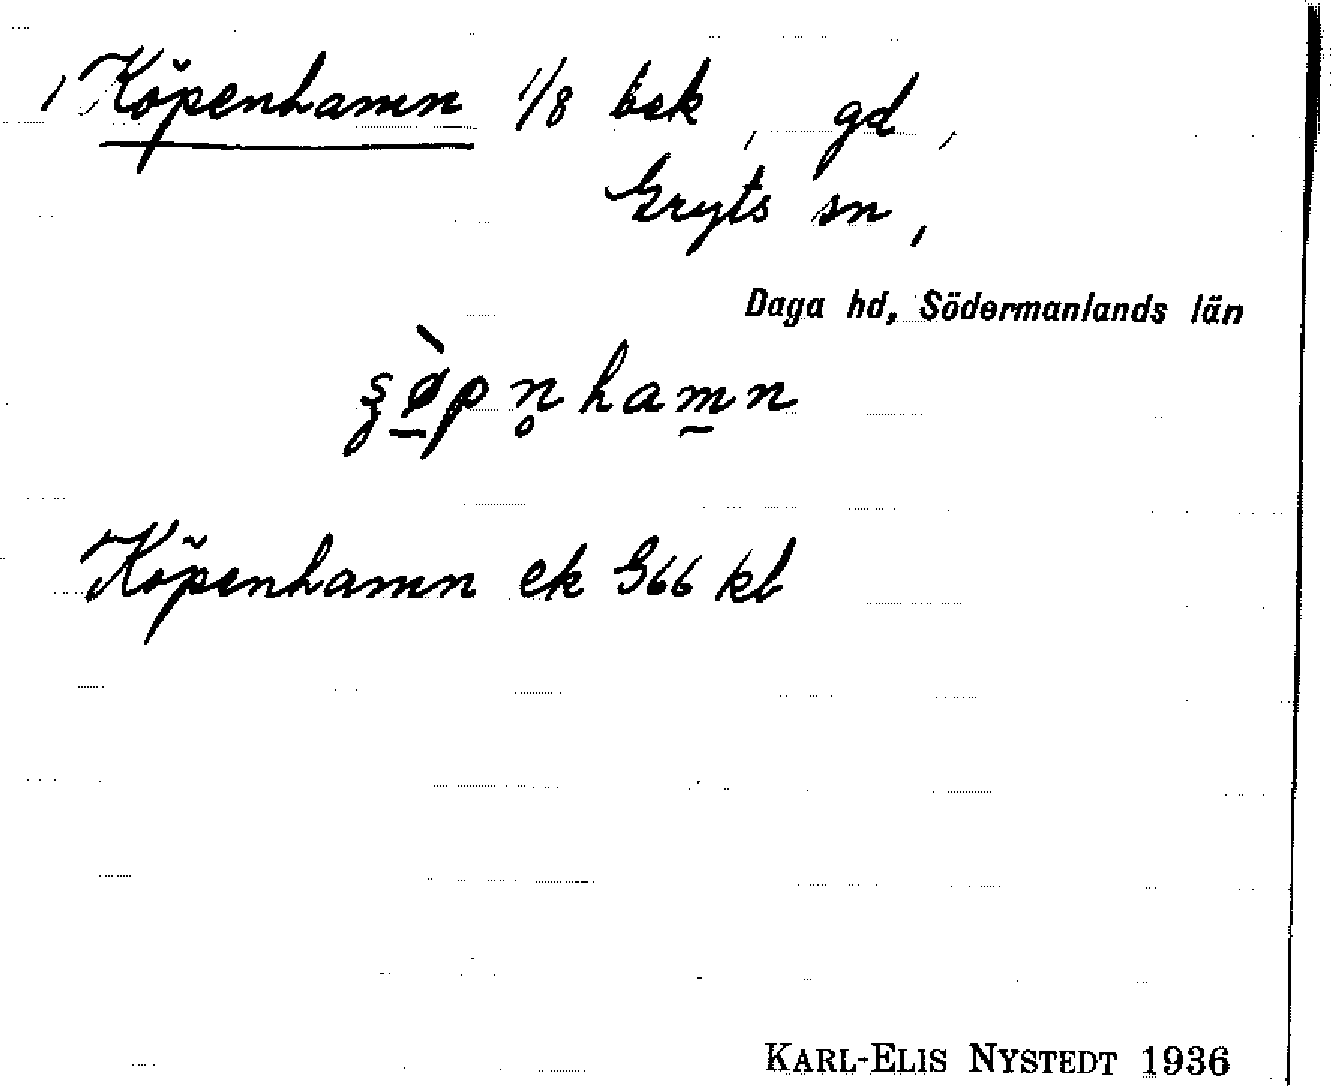 Köpenhamn 1/8 bsk, gd,
Gryts sn,
Daga hd, Södermanlands län
Köpenhamn ek G66 kb
KARL-ELIS NYSTEDT 1936